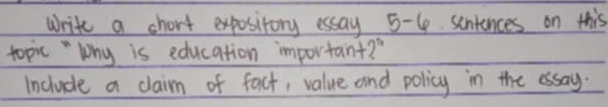 Write a short expository essay 5-6 sentences on this
topic "Why is education important?"
Include a claim of fact, value and policy in the essay.